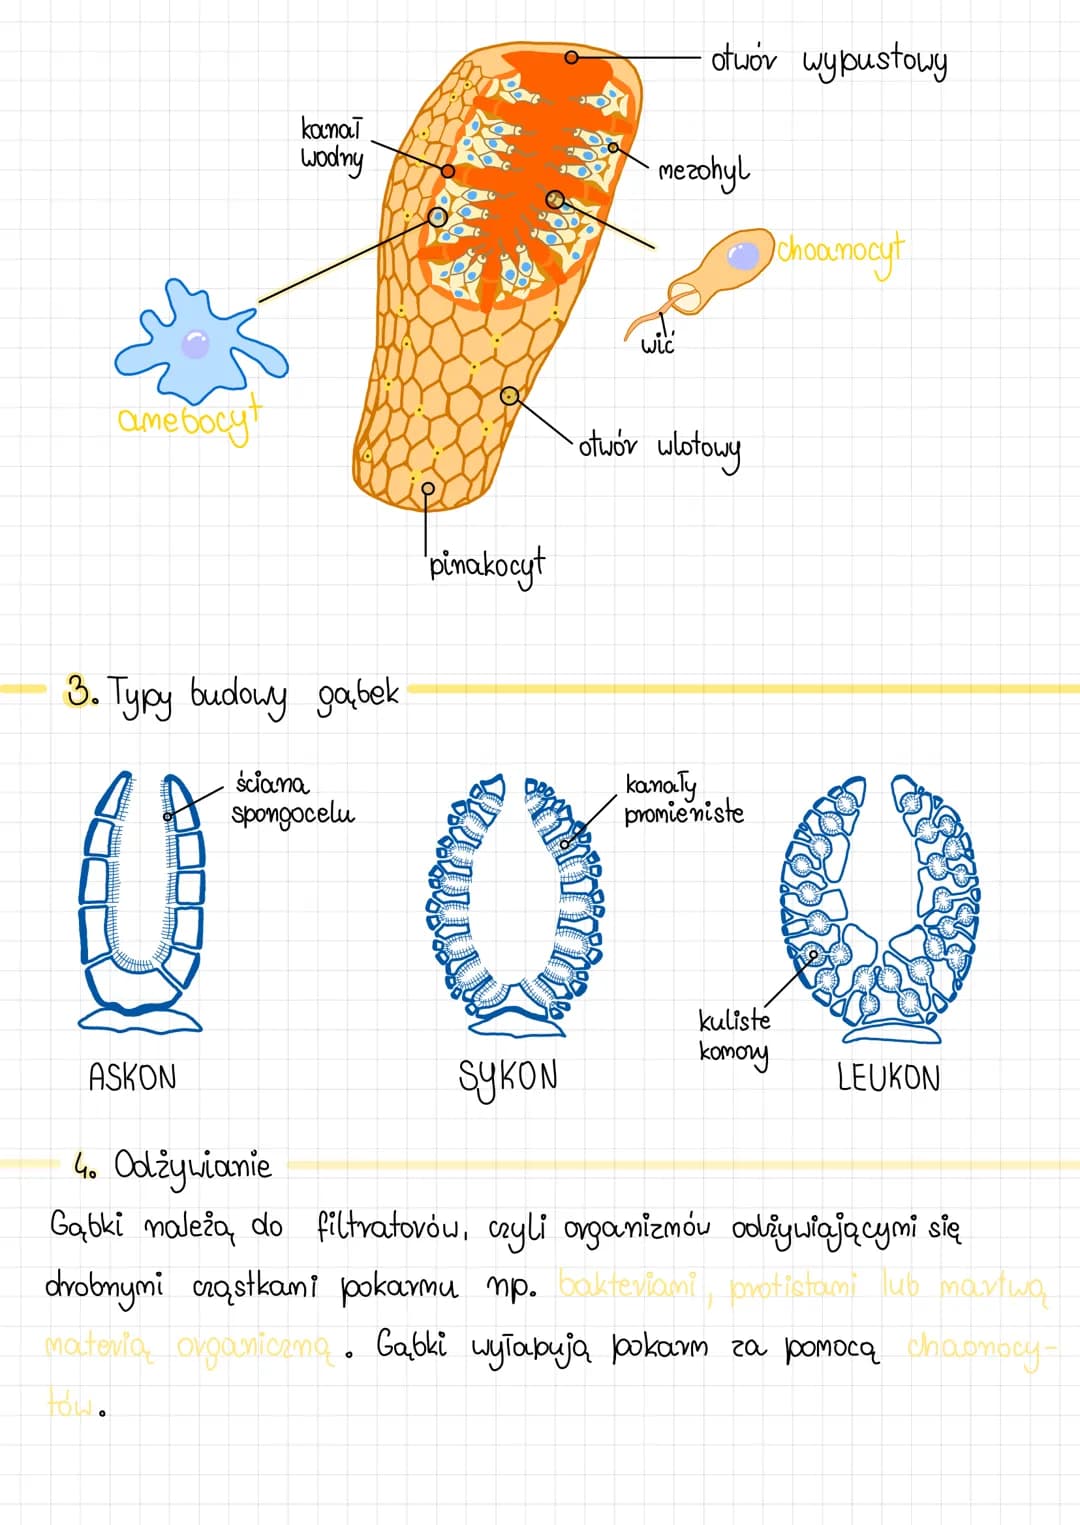 otwór wypustowy
kanał
wodny
mezohyl
choanocyt
wić
amebocyt
otwór wlotowy
pinakocyt
3. Typy budowy gąbek
ściana
spongocelu
kanały
promieniste
kuliste
komory
ASKON
SYKON
LEUKON
4. Odżywianie
Gąbki należą do filtratorów, czyli organizmów odżywiającymi się
drobnymi cząstkami pokarmu np. bakteriami, protistami lub martwą
materią organiczną. Gąbki wyłapują pokarm za pomocą chaonocy-
tów.